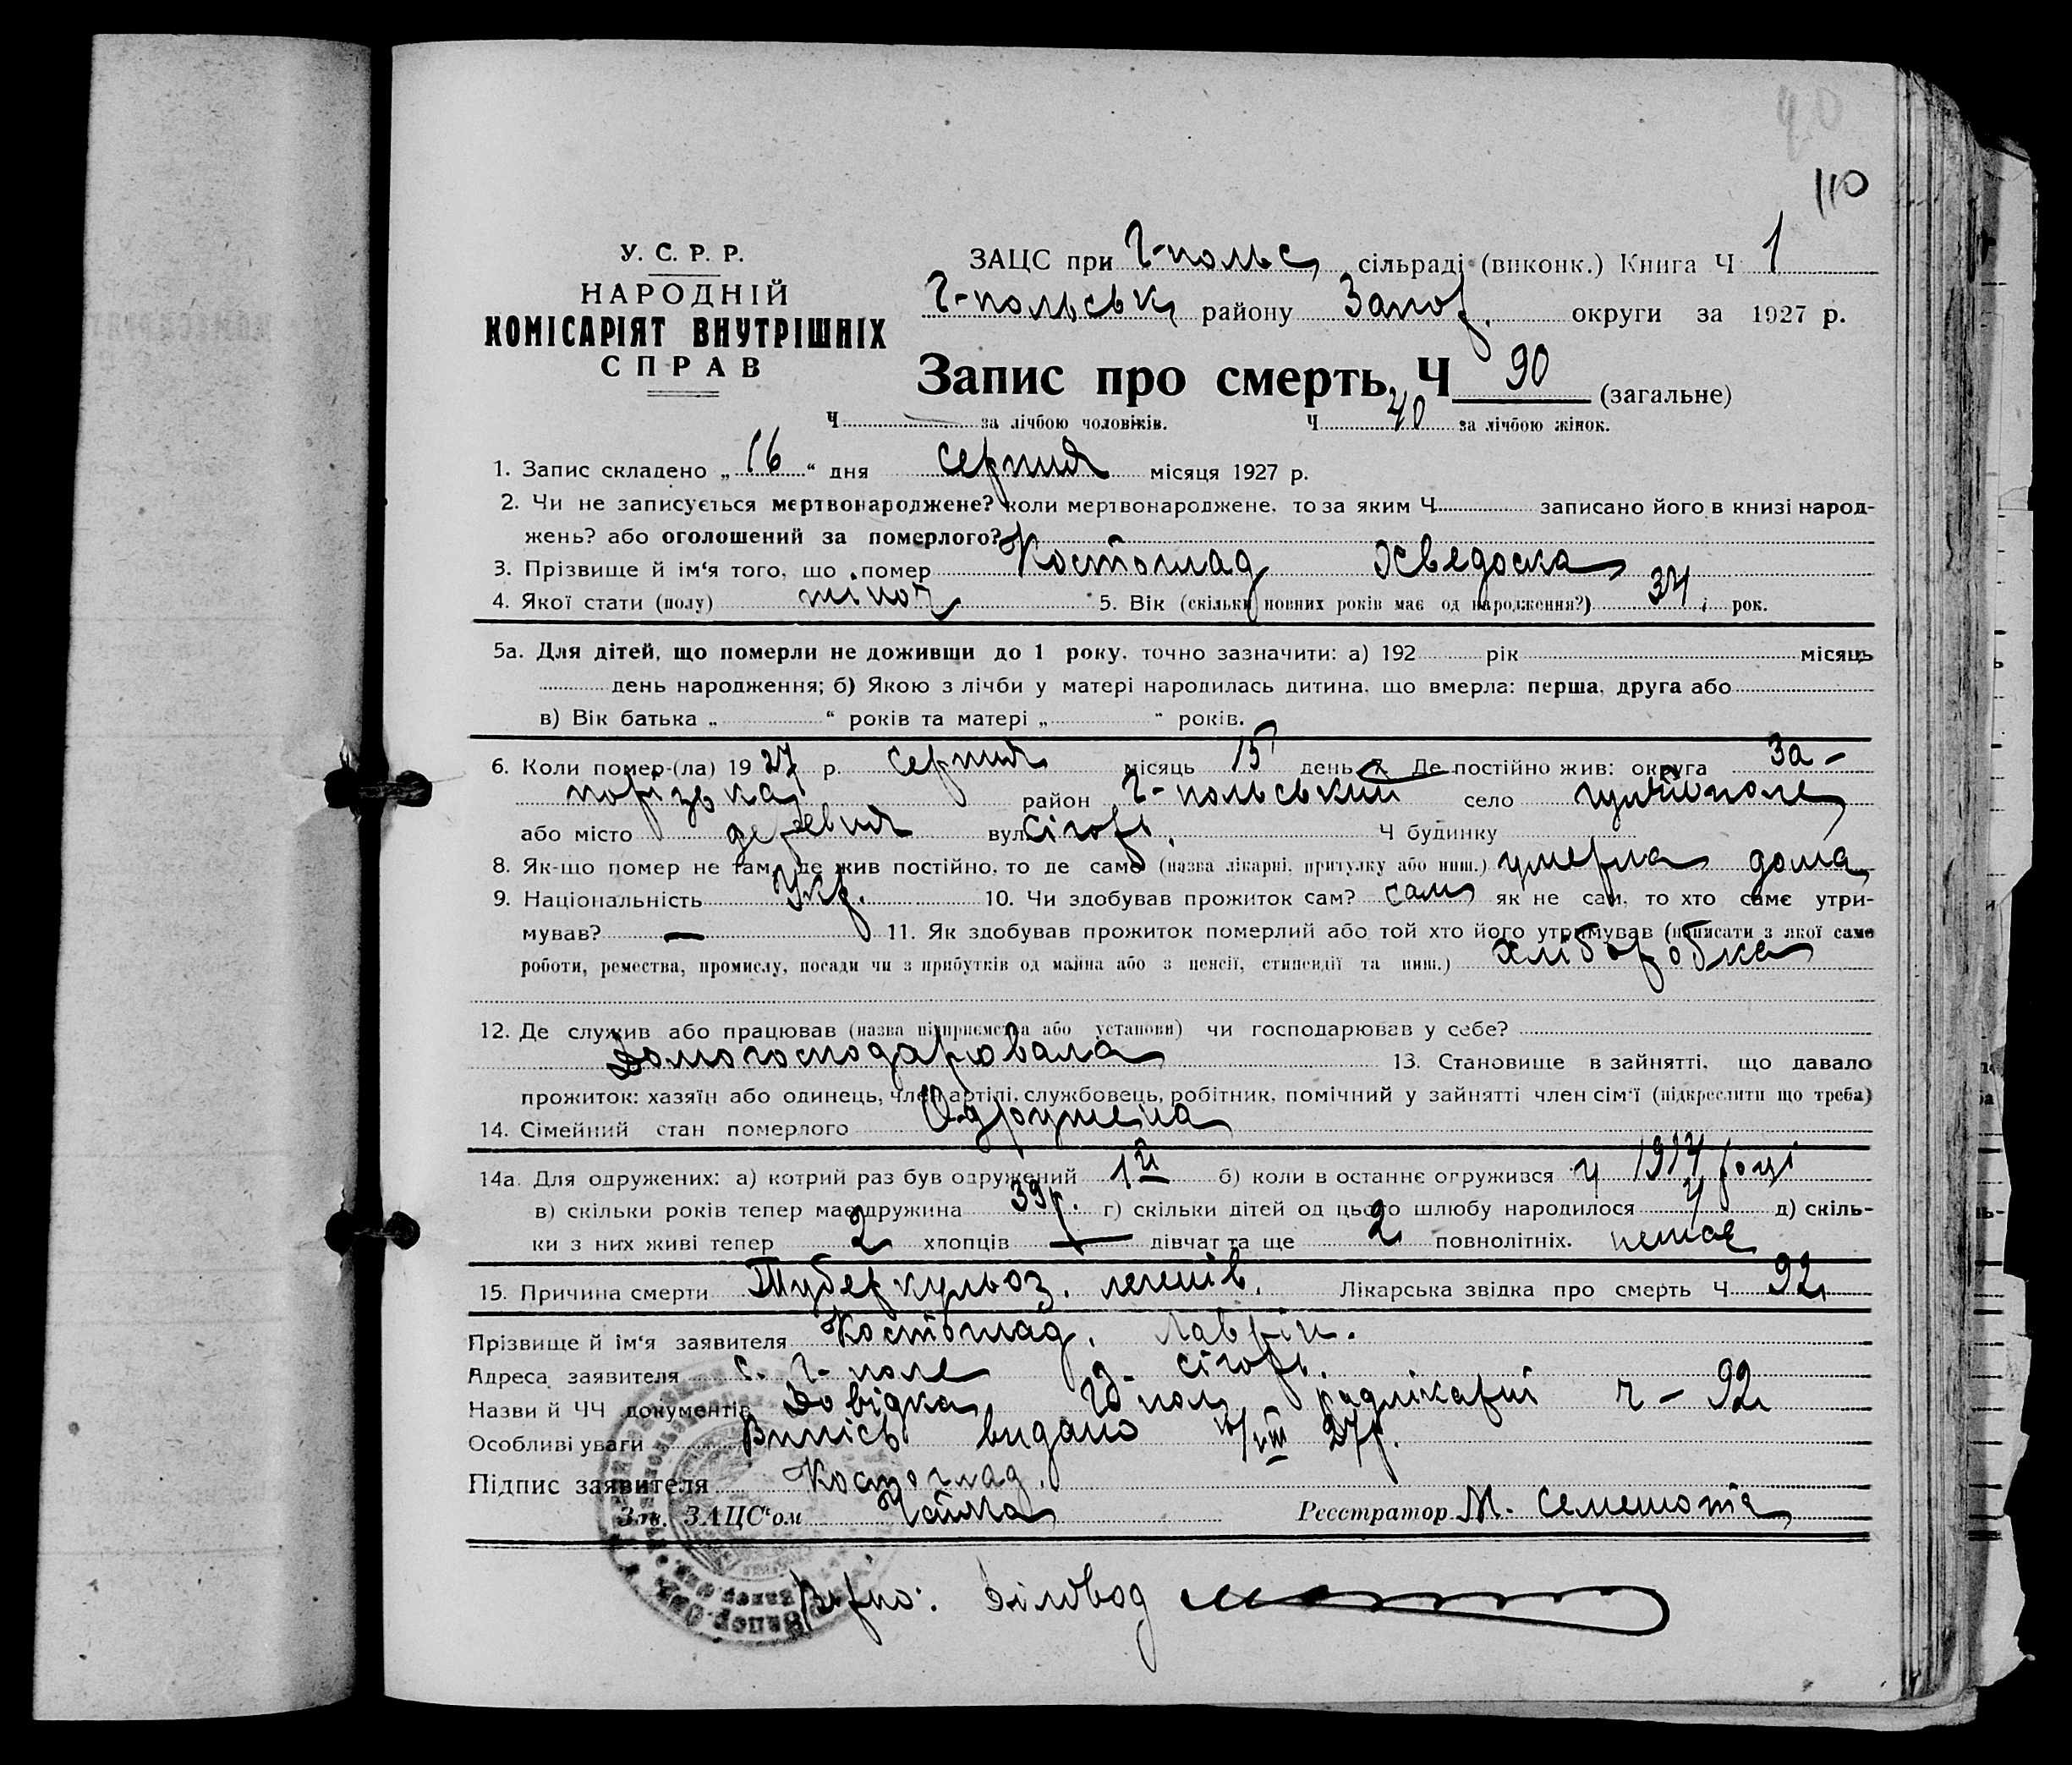 110
У. С. Р. Р.
НАРОДНІЙ
КОМІСАРІЯТ ВНУТРІШНІХ
СПРАВ
ЗАЦС при Г-польс сільраді (виконк.) Книга Ч 1
Г-польськ району Запор. округи за 1927 р.
Запис про смерть, Ч 90 (загальне)
Ч за лічбою чоловіків. Ч 40 за лічбою жінок.
1. Запис складено „ 16 “ дня серпня місяця 1927 р.
2. Чи не записується мертвонароджене? коли мертвонароджене, то за яким Ч записано його в книзі народ-
жень? або оголошений за померлого?
3. Прізвище й ім‘я того, що помер Костоглад
4. Якої стати (полу) жіноч 5. Вік (скільки повних років має од народження?) 34 рок.
5а. Для дітей, що померли не доживши до 1 року, точно зазначити: а) 192 рік місяць
день народження; б) Якою з лічби у матері народилась дитина, що вмерла: перша, друга або
в) Вік батька „ “ років та матері „ “ років.
6. Коли помер-(ла) 19 27 р. серпня місяць 15 день 7. Де постійно жив: округа За-
порізька район Г-польський село Гуляйполе
або місто деревня вул. Сігорі. Ч будинку
8. Як-що помер не там, де жив постійно, то де саме (назва лікарні, притулку або инш.) умерла дома
9. Національність Укр. 10. Чи здобував прожиток сам? сама як не сам, то хто саме утри-
мував? — 11. Як здобував прожиток померлий або той хто його утримував (написати з якої саме
роботи, ремества, промислу, посади чи з прибутків од майна або з пенсії, стипендії та инш.) хліборобка
12. Де служив або працював (назва підприємства або установи) чи господарював у себе?
Домогосподарювала 13. Становище в зайнятті, що давало
прожиток: хазяїн або одинець, член артілі, службовець, робітник, помічний у зайнятті член сім‘ї (підкреслити що треба)
14. Сімейний стан померлого Одружена
14а. Для одружених: а) котрий раз був одружений 1й б) коли в останнє одружився у 1914 році
в) скільки років тепер має дружина 39 р. г) скільки дітей од цього шлюбу народилося 4 д) скіль-
ки з них живі тепер 2 хлопців — дівчат та ще 2 повнолітніх. немає
15. Причина смерти Туберкульоз. легенів. Лікарська звідка про смерть Ч 92
Прізвище й ім‘я заявителя Костоглад. Лаврін.
Адреса заявителя с. Г-поле д- Сігорі.
Назви й ЧЧ документів Довідка Г-пол радлікарні ч - 92
Особливі уваги Випись видано 16/VIII 27р.
Підпис заявителя Костоглад.
Зав. ЗАЦС‘ом Чайка Реєстратор М. Семенюта
Вірно: Діловод